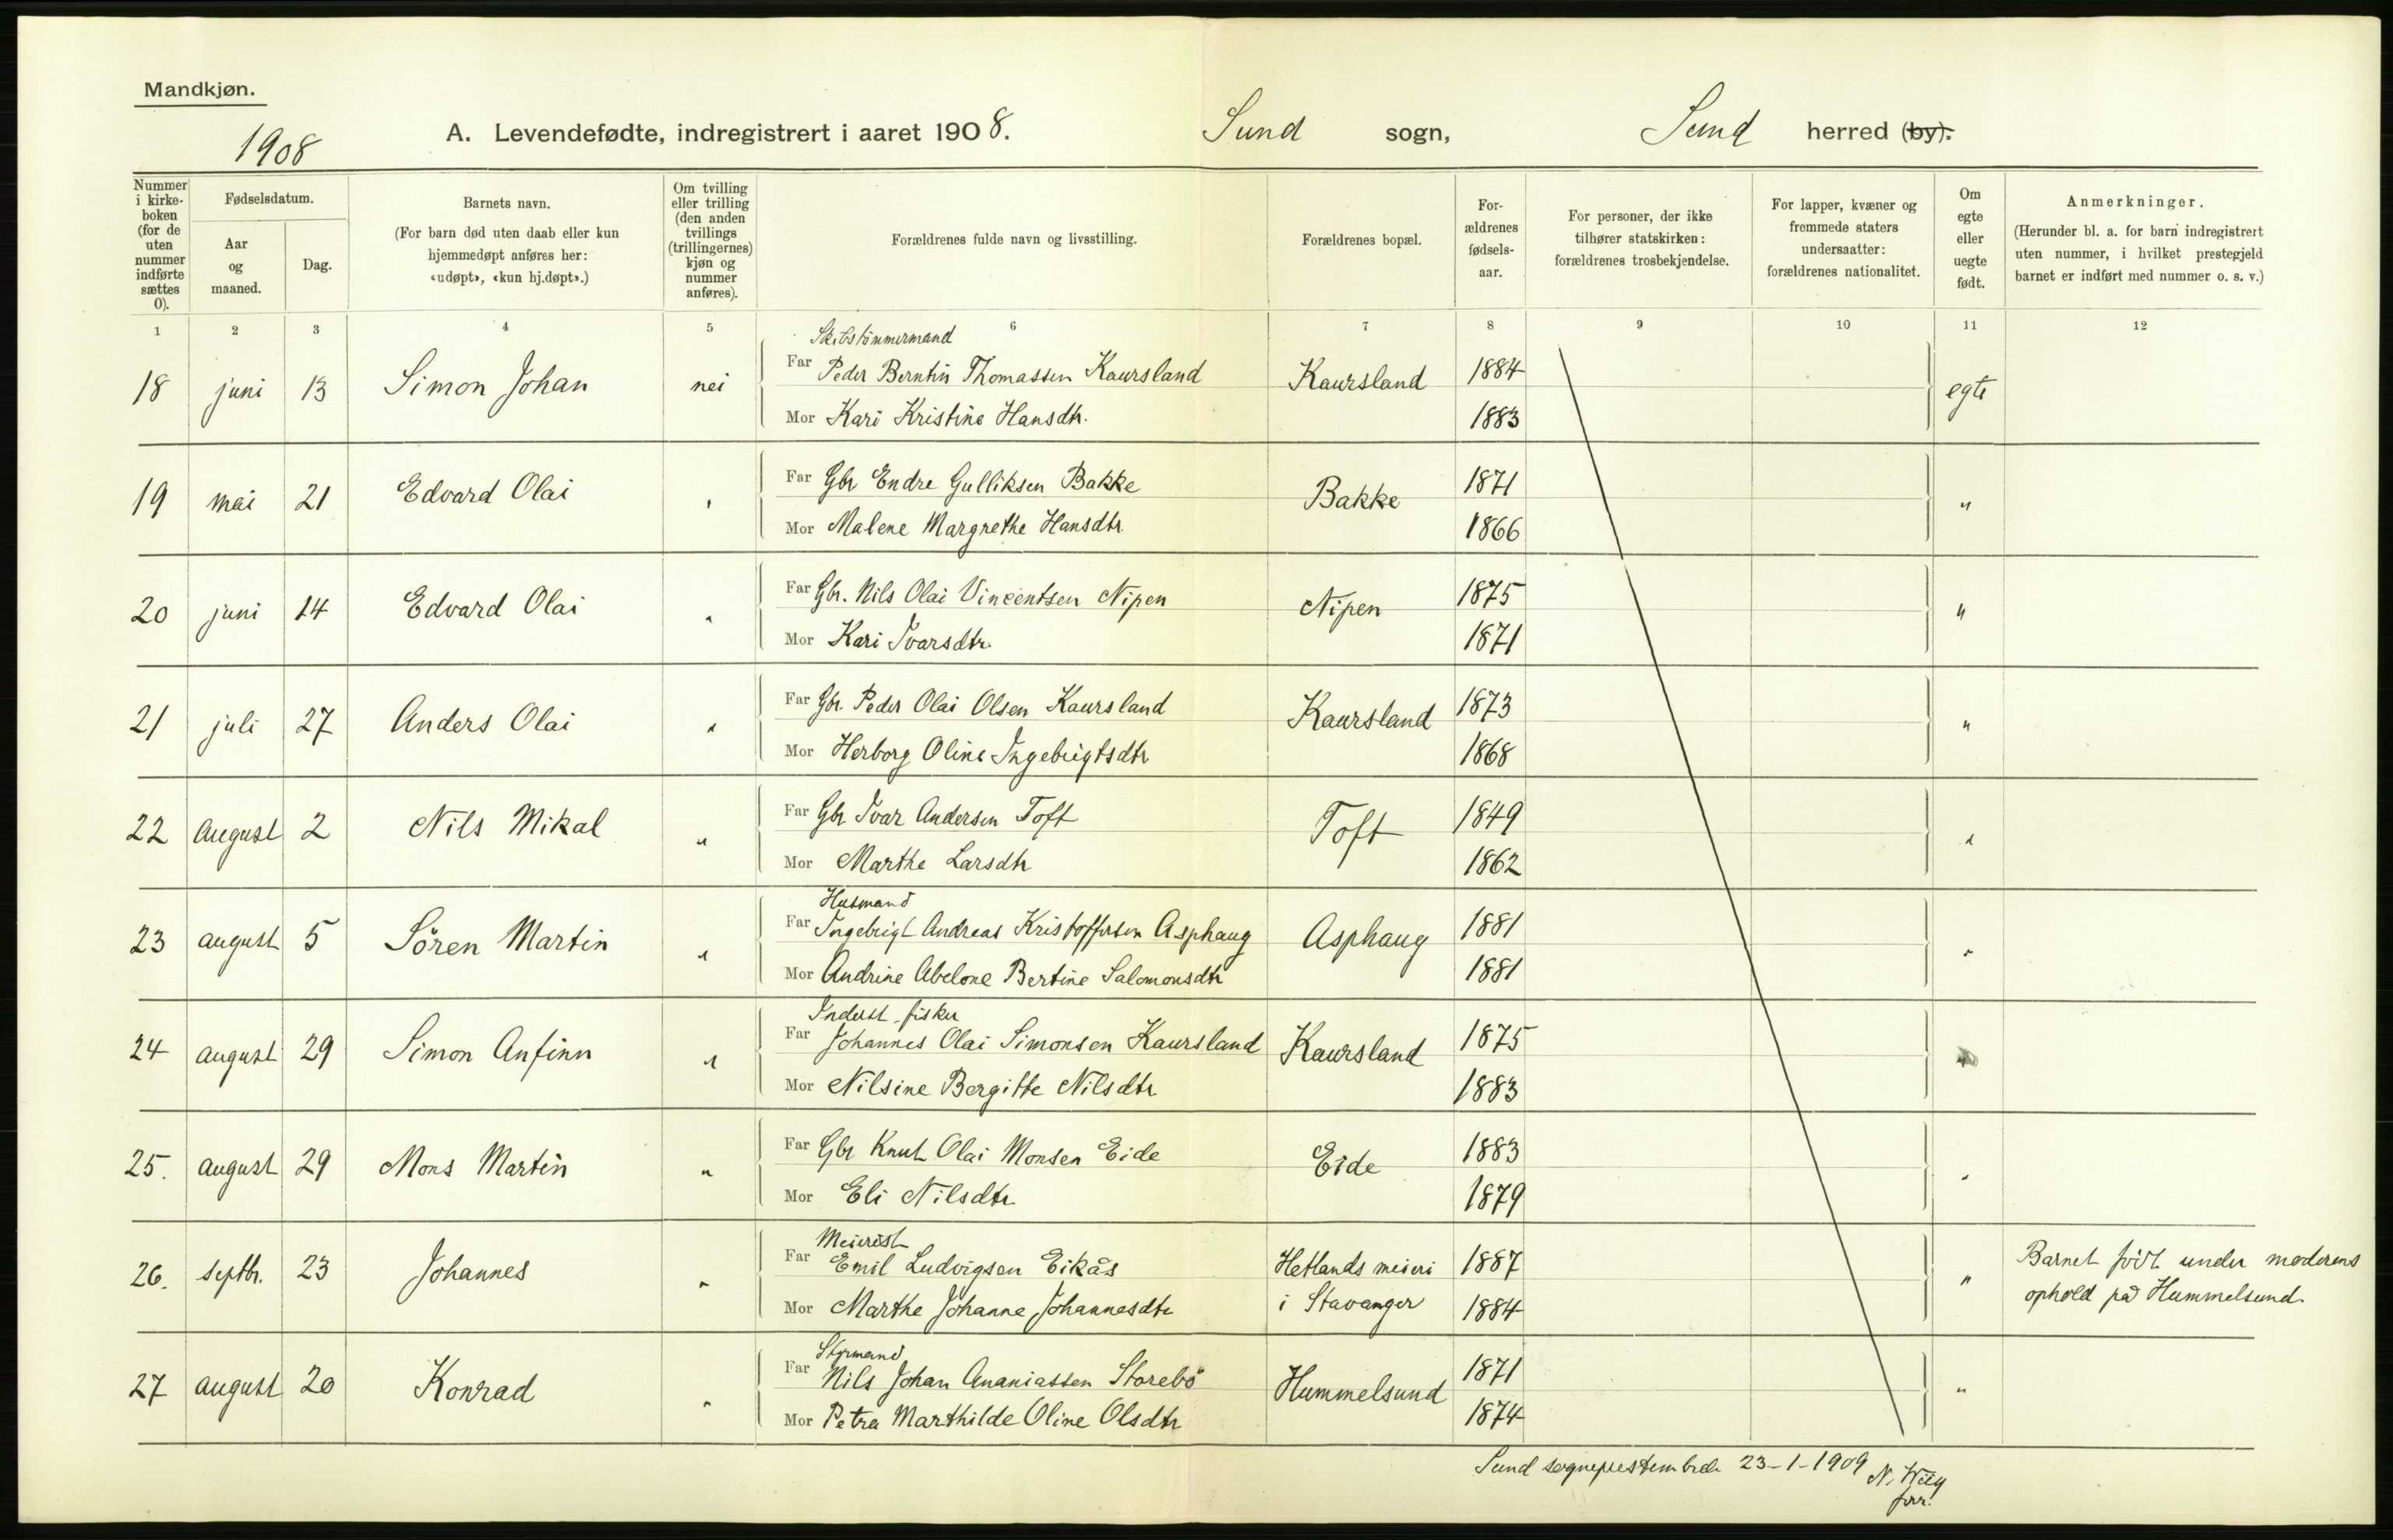 Mandkjøn.
1908
A. Levendefødte, indregistrert i aaret 1908. Sund sogn, Sund herred (by).
Nummer i kirke-boken (for de uten nummer indførte sættes 0).
Fødselsdatum.
Aar og maaned.
Dag.
Barnets navn.
(For barn død uten daab eller kun hjemmedøpt anføres her: «udøpt», «kun hj.døpt».)
Om tvilling eller trilling (den anden tvillings (trillingernes) kjøn og nummer anføres).
Forældrenes fulde navn og livsstilling.
Forældrenes bopæl.
For-ældrenes fødsels-aar.
For personer, der ikke tilhører statskirken: forældrenes trosbekjendelse.
For lapper, kvæner og fremmede staters undersaatter: forældrenes nationalitet.
Om egte eller uegte født.
Anmerkninger.
(Herunder bl. a. for barn indregistrert uten nummer, i hvilket prestegjeld barnet er indført med nummer o. s. v.)
1 2 3 4 5 6 7 8 9 10 11 12
Skibstømmermand
18 juni 13 Simon Johan nei Far Peder Berntin Thomassen Kaursland Kaursland 1884 egte
Mor Kari Kristine Hansdtr. 1883
19 mai 21 Edvard Olai " Far Gbr Endre Gulliksen Bakke Bakke 1871 "
Mor Malene Margrethe Hansdtr 1866
20 juni 14 Edvard Olai " Far Gbr. Nils Olai Vincentsen Nipen Nipen 1875 "
Mor Kari Ivarsdtr. 1871
21 juli 27 Anders Olai " Far Gbr. Peder Olai Olsen Kaursland Kaursland 1873 "
Mor Herborg Oline Ingebrigtsdtr 1868
22 August 2 Nils Mikal " Far Gbr Ivar Andersen Toft Toft 1849 "
Mor Marthe Larsdtr 1862
Husmand
23 august 5 Sören Martin " Far Ingebrigt Andreas Kristoffersen Asphaug Asphaug 1881 "
Mor Andrine Abelone Bertine Salomonsdtr 1881
Inderst, fisker
24 august 29 Simon Anfinn " Far Johannes Olai Simonsen Kaursland Kaursland 1875 "
Mor Nilsine Bergitte Nilsdtr 1883
25. august 29 Mons Martin " Far Gbr Knut Olai Monsen Eide Eide 1883 "
Mor Eli Nilsdtr 1879
Meierist
26. septbr. 23 Johannes " Far Emil Ludvigsen Eikås Hetlands meieri 1887 " Barnet født under moderens
Mor Marthe Johanne Johannesdtr i Stavanger 1884 ophold på Hummelsund.
Styrmand
27 august 20 Konrad " Far Nils Johan Ananiassen Storebö Hummelsund 1871 "
Mor Petra Marthilde Oline Olsdtr 1874
Sund sogneprestembede 23-1-1909